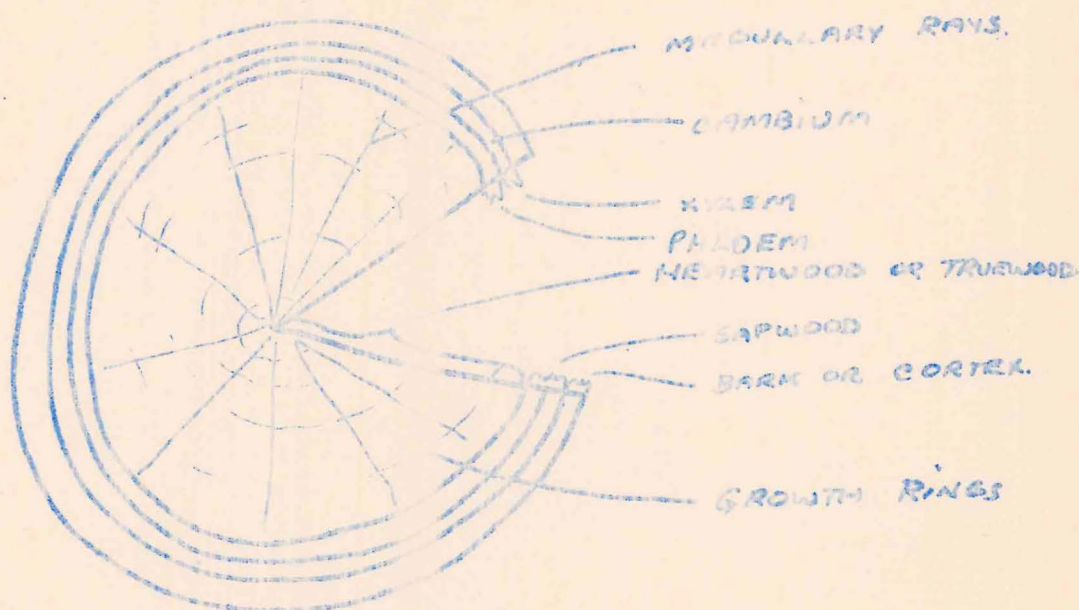 MEDULLARY RAYS.
CAMBIUM
XYLEM
PHLOEM
HEARTWOOD OR TRUEWOOD
SAPWOOD
BARK OR CORTEX.
GROWTH RINGS